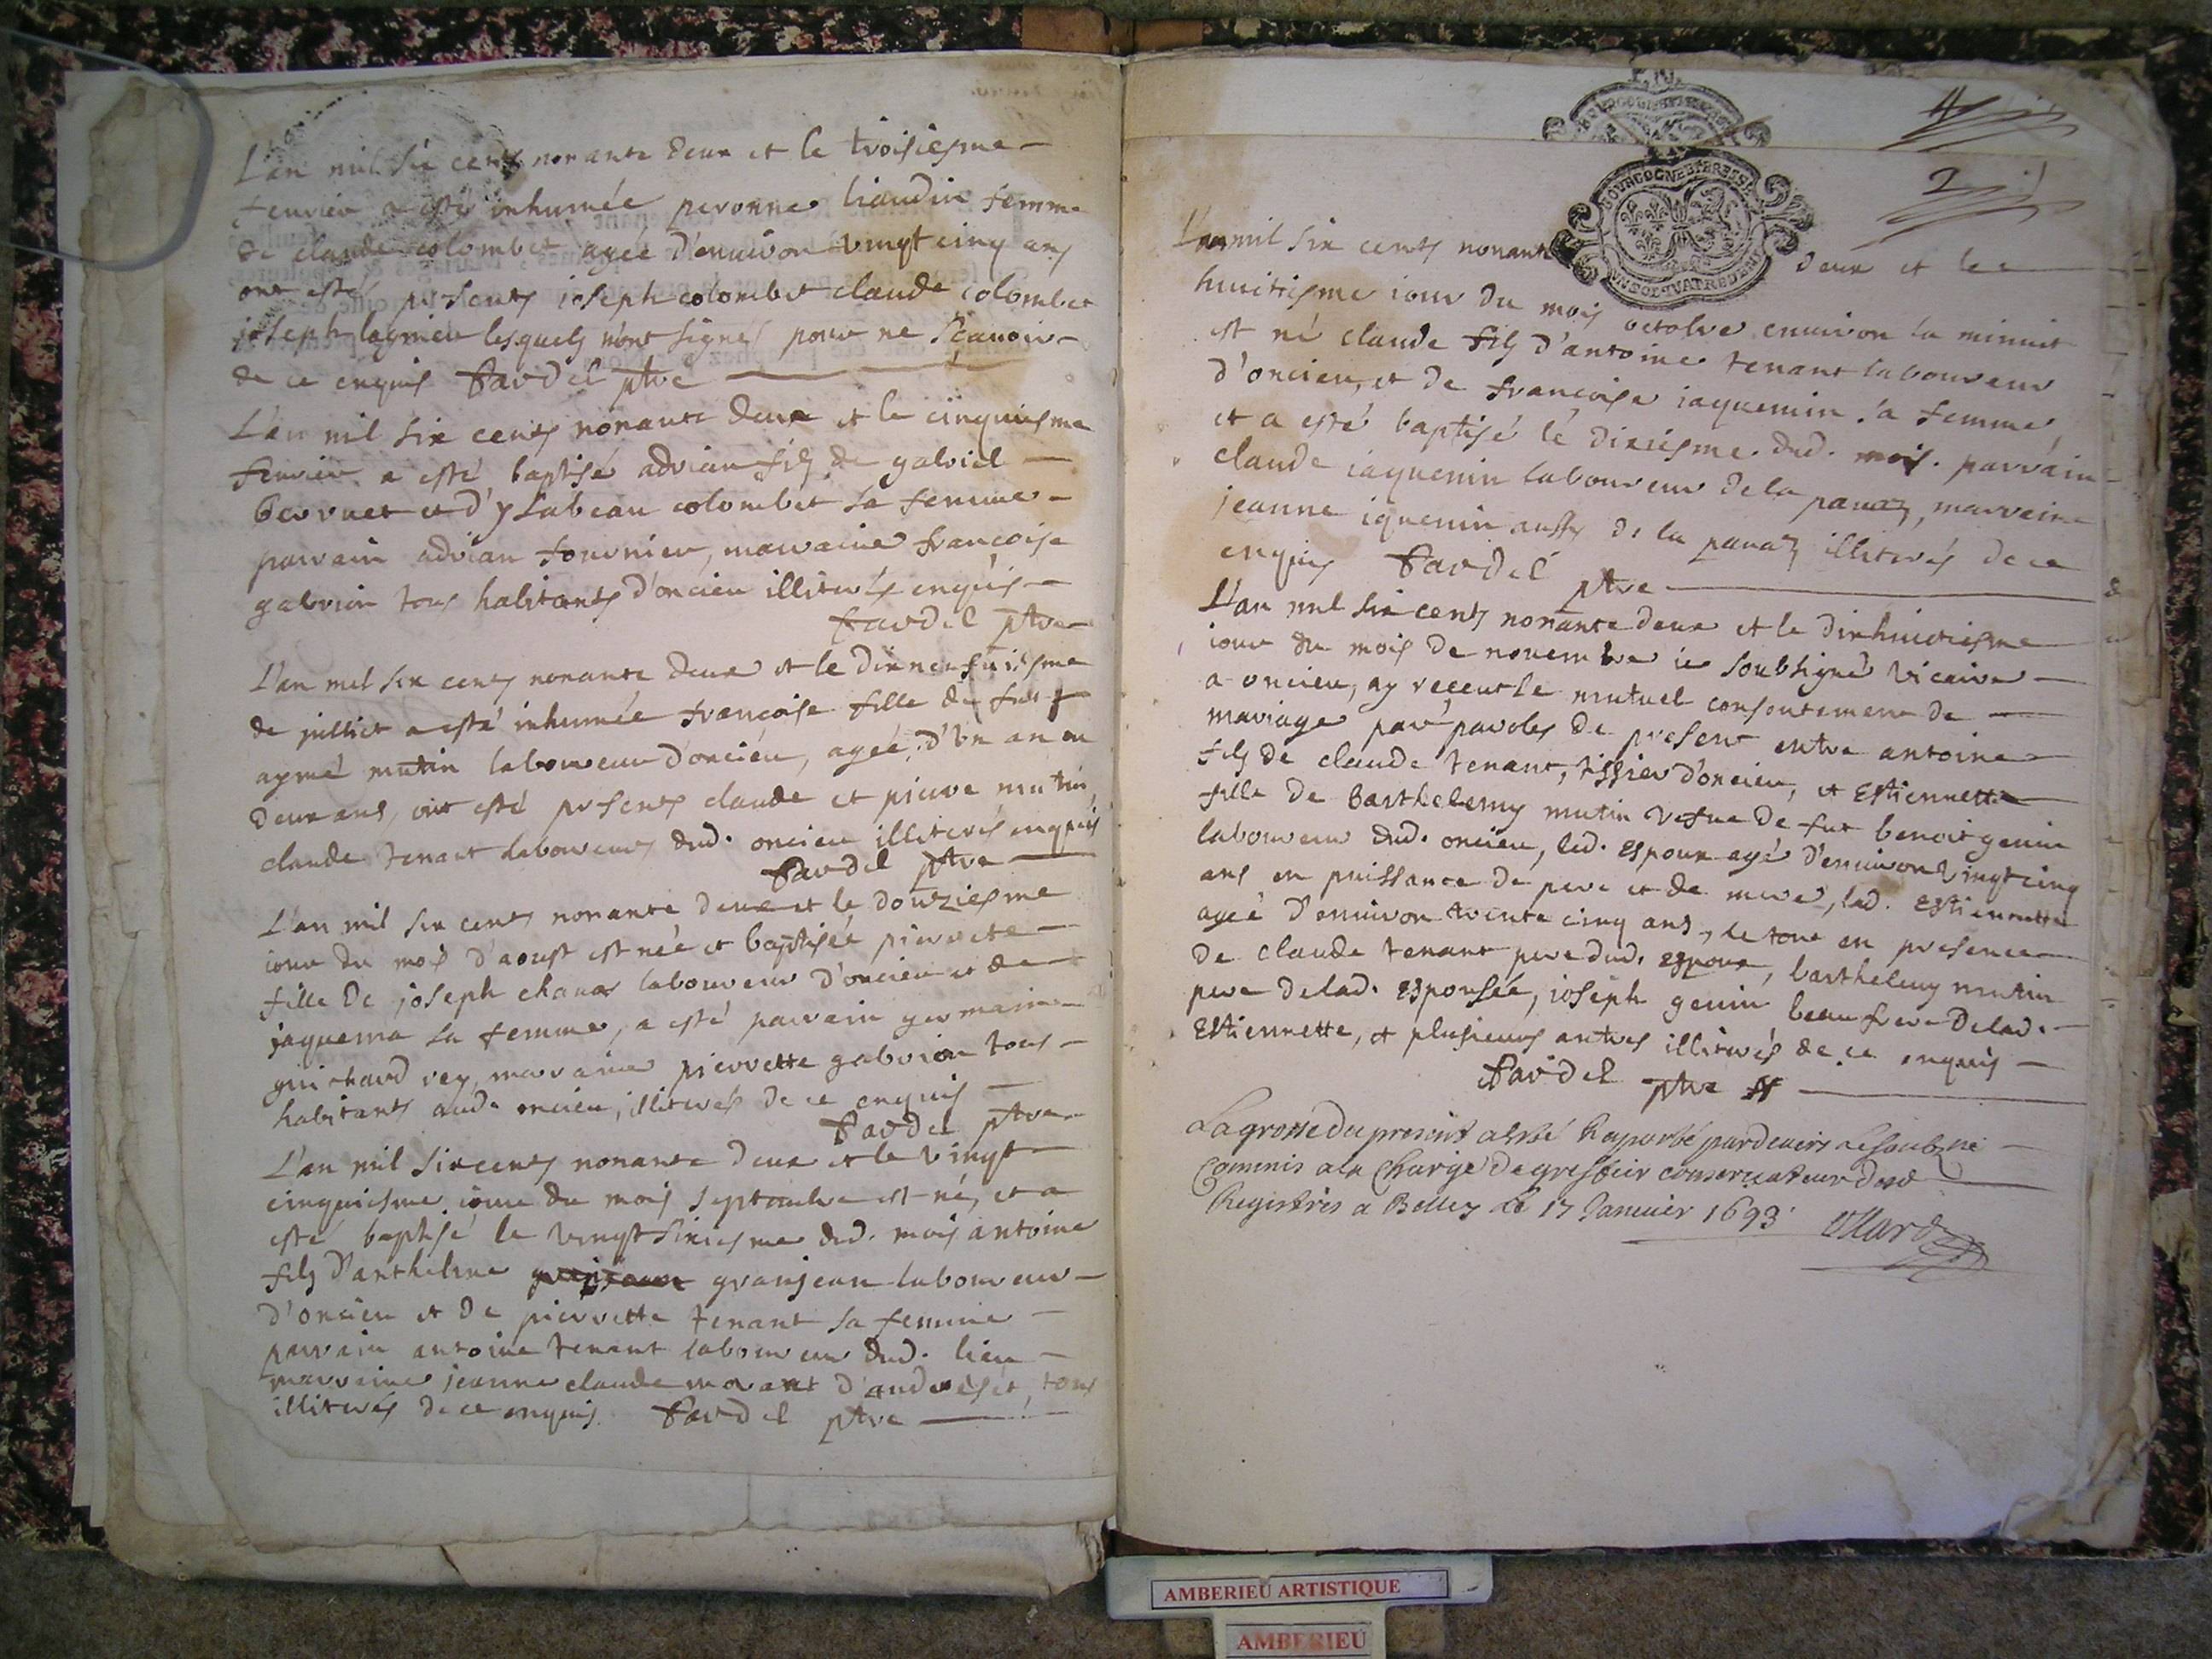 L'an mil six cents nonante deux et le troisiesme
feurier a esté inhumée peronne liaudin femme
de claude colombet agee d'enuiron vingt cinq ans
ont estés presents ioseph colombet claude colombet
joseph lagnieu lesquels n'ont signes pour ne scauoir
de ce enquis Fardel ptre
L'an mil six cents nonante deux et le cinquiesme
feurier a esté baptisé adrian fils de gabriel
Berruet et d'ysabeau colombet sa femme
parrain adrian fournier, marraine francoise
gabrion tous habitants d'oncieu illiterés enquis
Fardel ptre
L'an mil six cents nonante deux et le dixneufuiesme
de juillict a esté inhumée francoise fille de fut
aymé mutin laboureur d'oncieu, agée d'un an ou
deux ans, ont esté presents claude et pierre mutin,
claude tenant laboureurs dud. oncieu illiterés enquis
Fardel ptre
L'an mil six cents nonante deux et le douziesme
iour du mois d'aoust est née et baptisée pierrette
fille de joseph chanas laboureur d'oncieu et de
jaquema sa femme, a esté parrain germain
guichard rey, marraine pierrette gabrion tous
habitants aud. oncieu, illiterés de ce enquis
Fardel ptre
L'an mil six cents nonante deux et le vingt
cinquiesme iour du mois septembre est né, et a
esté baptisé le vingt sixiesme dud. mois antoine
fils d'anthelme granjean laboureur
d'oncieu et de pierrette tenant sa femme
parrain antoine tenant laboureur dud. lieu
marraine jeanne claude morant d'andresét, tous
illiterés de ce enquis. Fardel ptre
4
2
BOURGOGNE ET BRESSE
L'an mil six cents nonante deux et le
huitiesme iour du mois octobre enuiron la minuit
est né claude fils d'antoine tenant laboureur
d'oncieu, et de francoise iaquemin sa femme,
et a esté baptisé le dixiesme dud. mois. parrain
claude iaquemin laboureur de la panaz, marraine
jeanne iquemin aussy de la panaz illiterés de ce
enquis Fardel ptre
L'an mil six cents nonante deux et le dixhuictiesme
iour du mois de nouembre ie soubsigné vicaire
a oncieu, ay receut le mutuel consentement de
mariage par paroles de present entre antoine
fils de claude tenant, tissier d'oncieu, et Estiennette
fille de Barthelemy mutin vefue de fut benoit genin
laboureur dud. oncieu, led. espoux agé d'enuiron vingt cinq
ans en puissance de pere et de mere, lad. Estiennette
agée d'enuiron trente cinq ans, le tout en presence
de claude tenant pere dud. espoux, barthelemy mutin
pere de lad. espousée, ioseph genin beau frere de lad.
Estiennette, et plusieurs autres illiterés de ce enquis
Fardel ptre
La grosse du present a esté Raporté pardeuers le soubzné
Commis a la Charge de greffier conseruateur desd
Registres a Belley Le 17 Januier 1693
AMBERIEU ARTISTIQUE
AMBERIEU